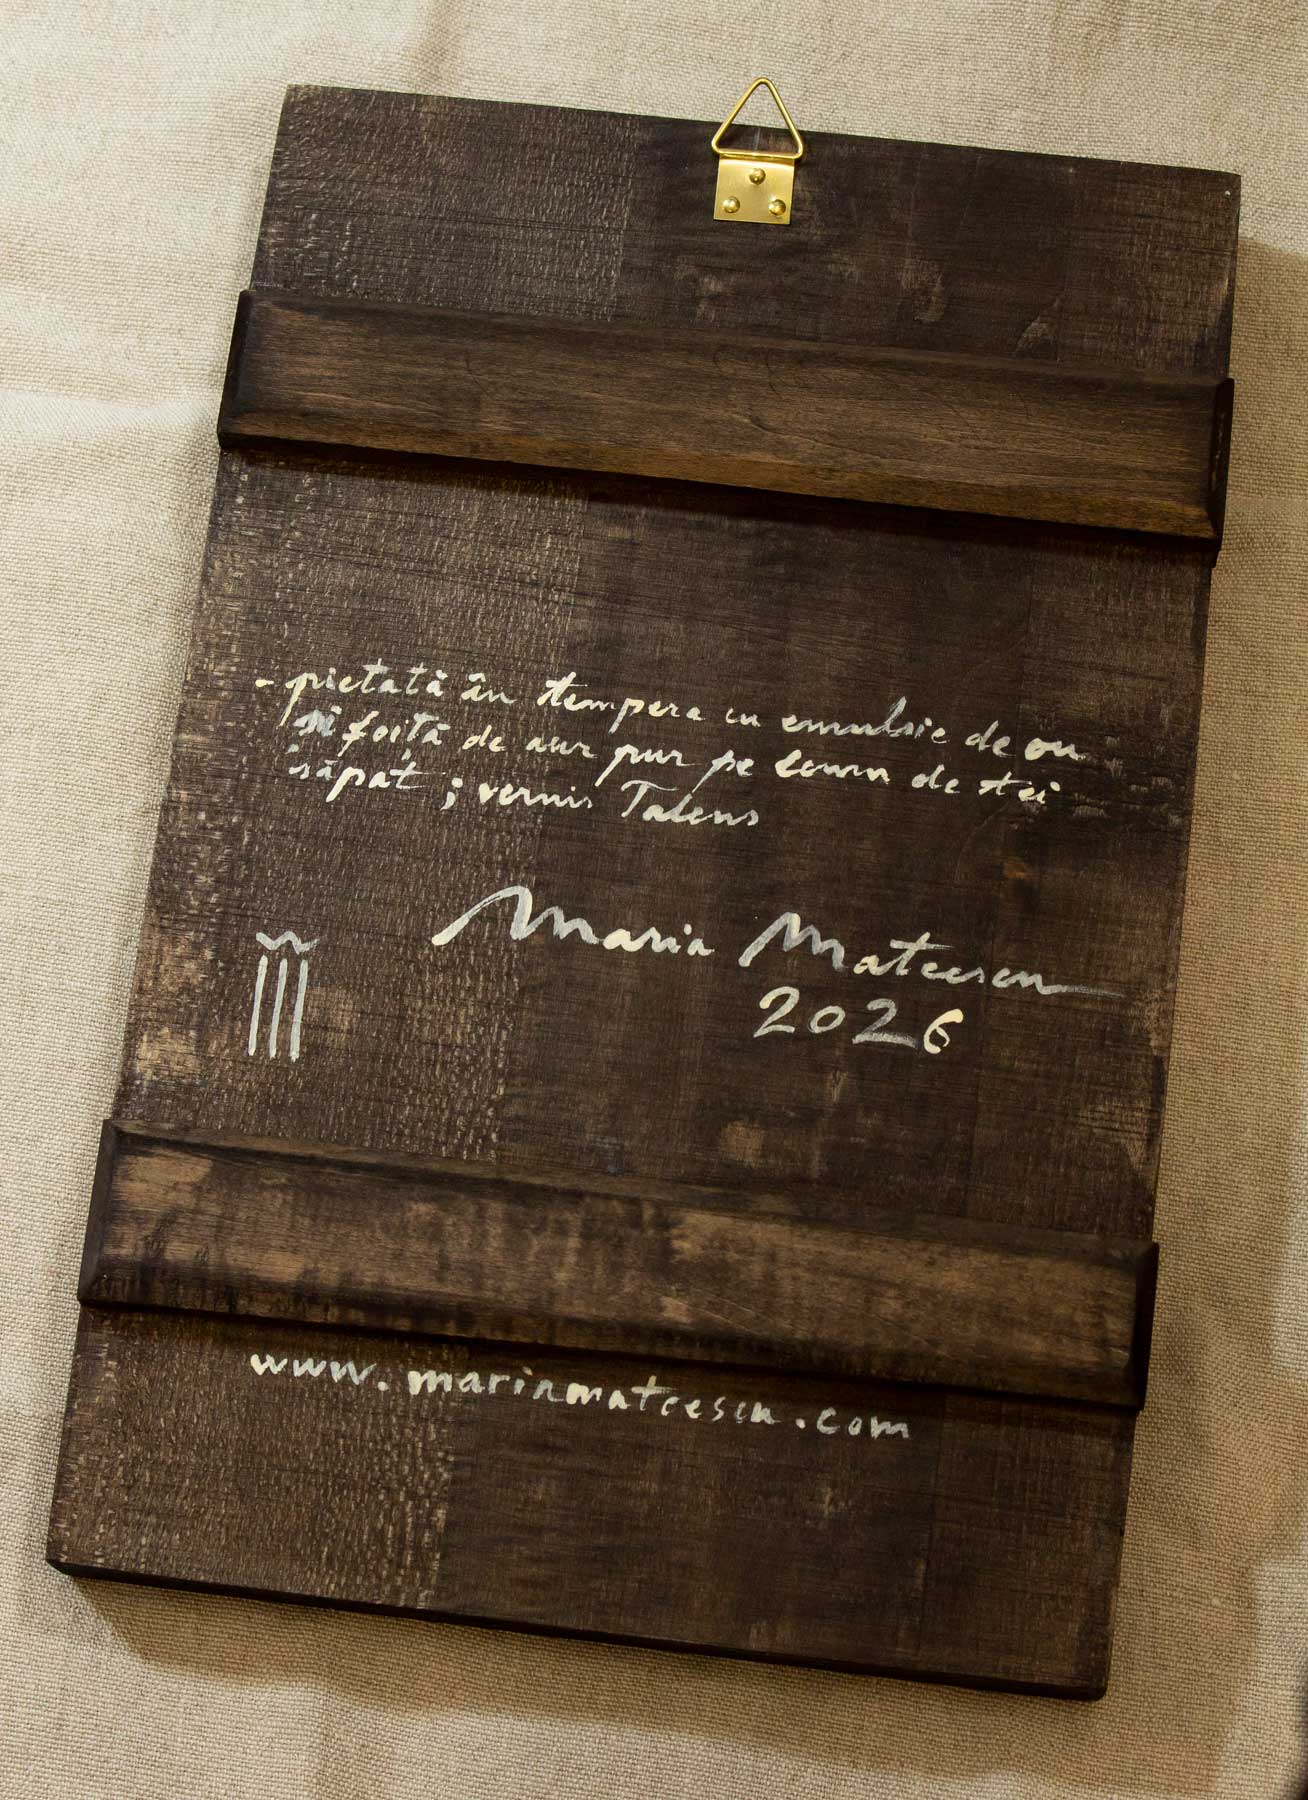 - pictată în tempera cu emulsie de ou
și foiță de aur pur pe lemn de tei
săpat ; vernis Talens
Maria Mateescu
2026
www.mariamateescu.com